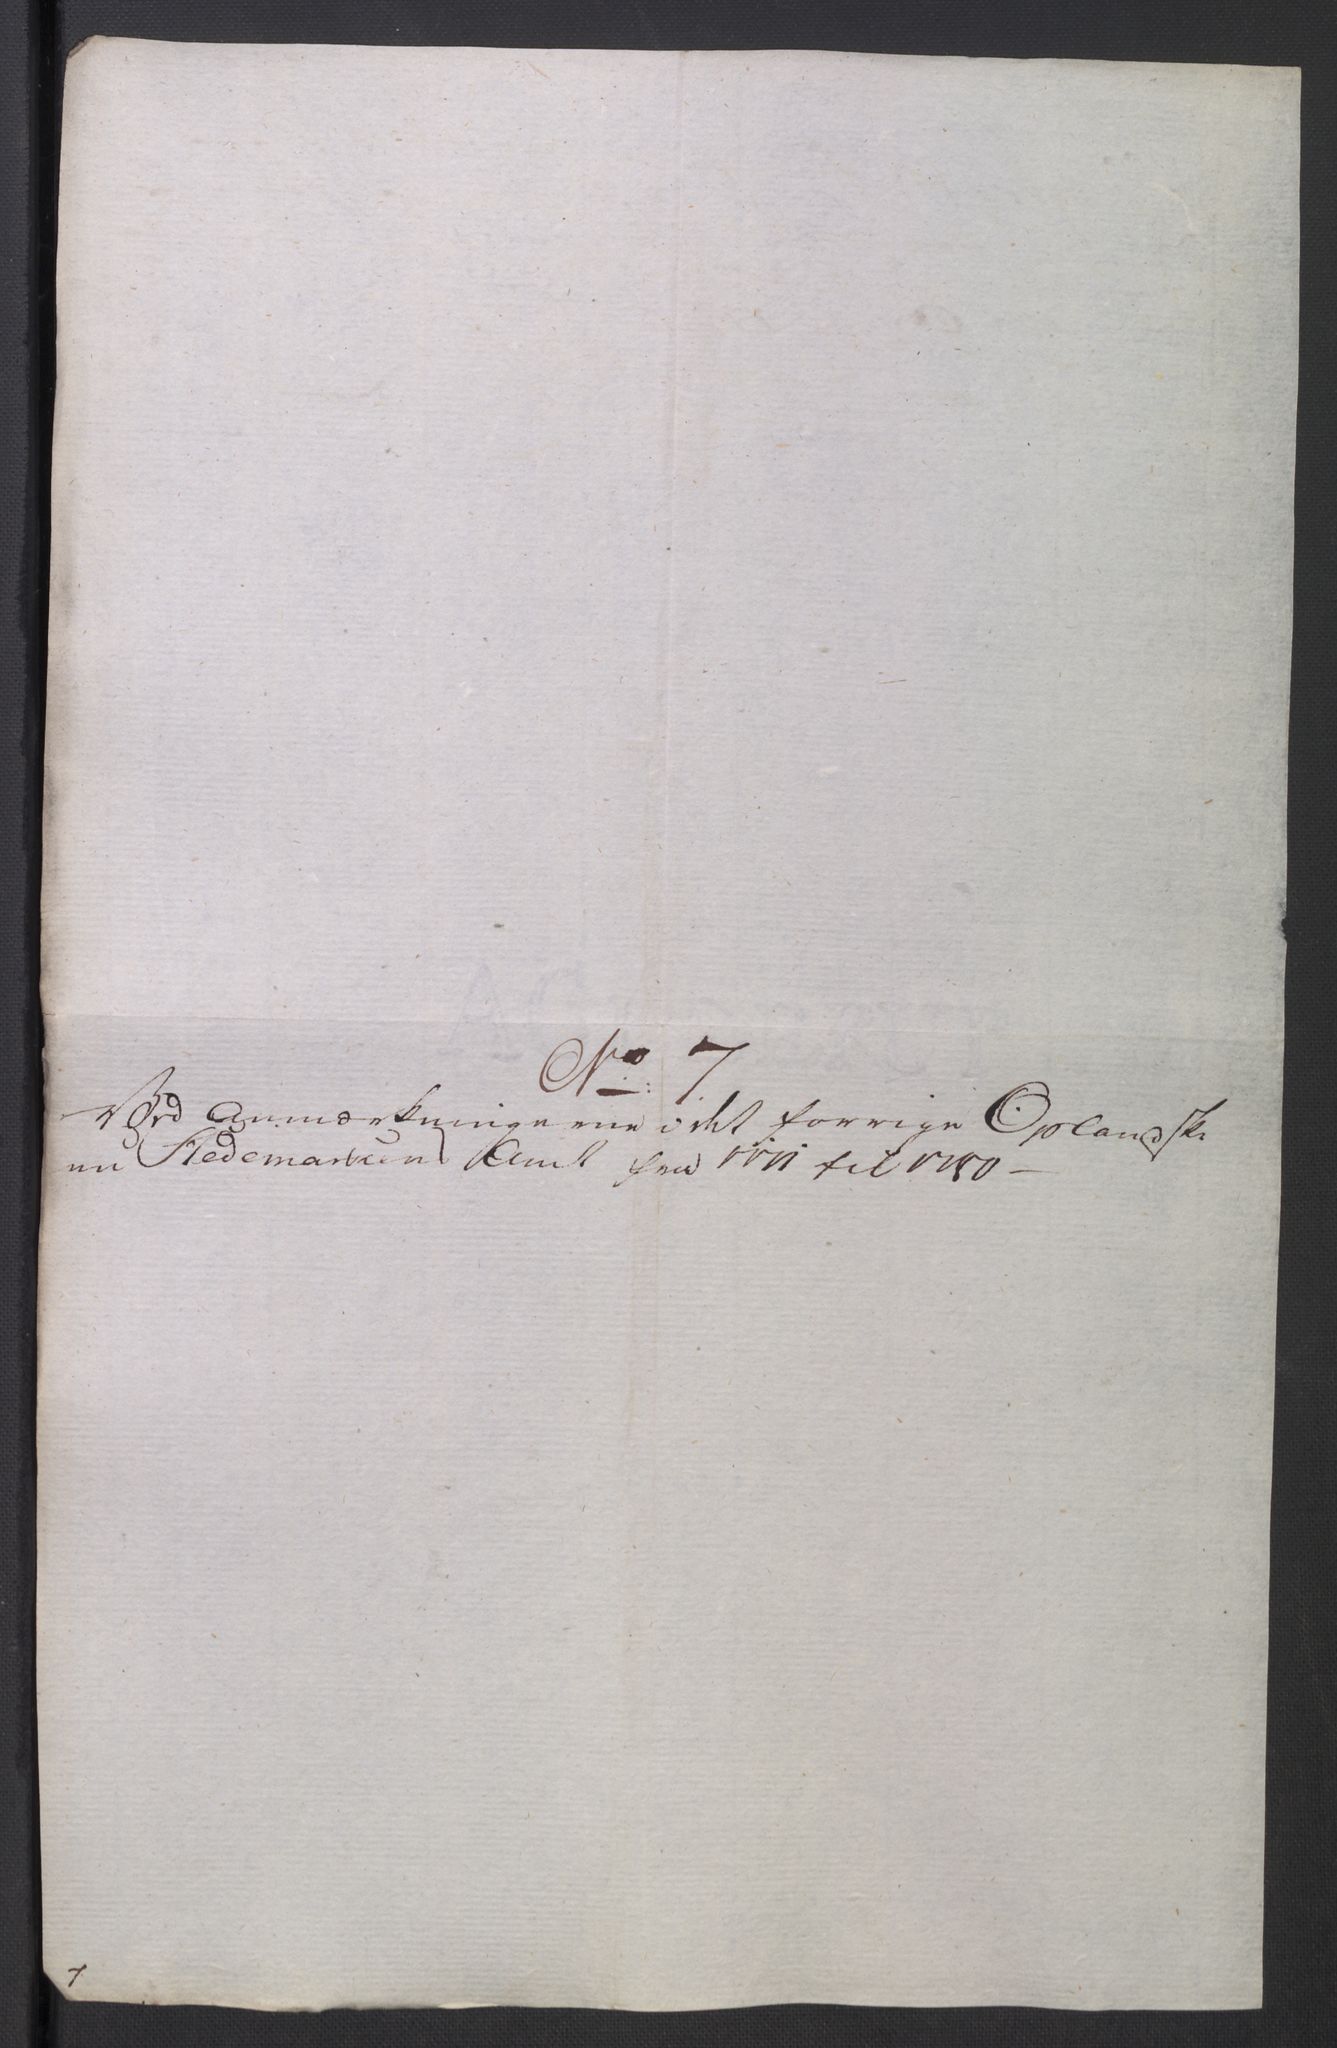 No 7
Ved Anmærkningerne i det forrige Oplandske
Hedemarkens Amt fra til
7